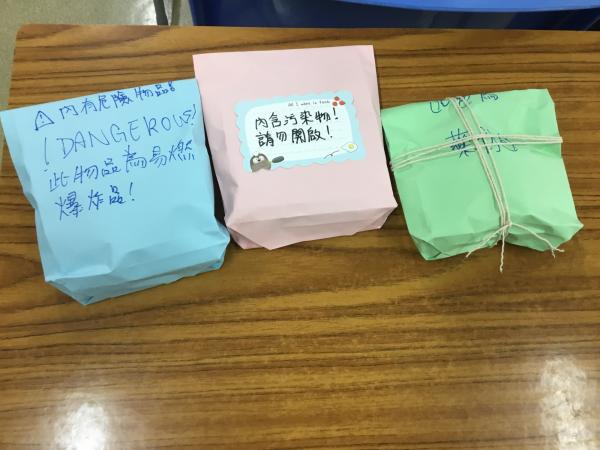 ⚠ 內有危險物品
! DANGEROUS!
此物品為易燃
爆炸品!
All I want is food
內含污染物!
請勿開啟!